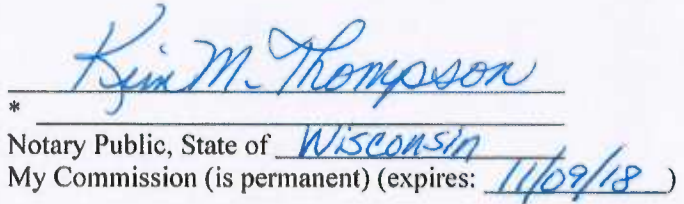 Kim M. Thompson
*
Notary Public, State of Wisconsin
My Commission (is permanent) (expires: 11/09/18)